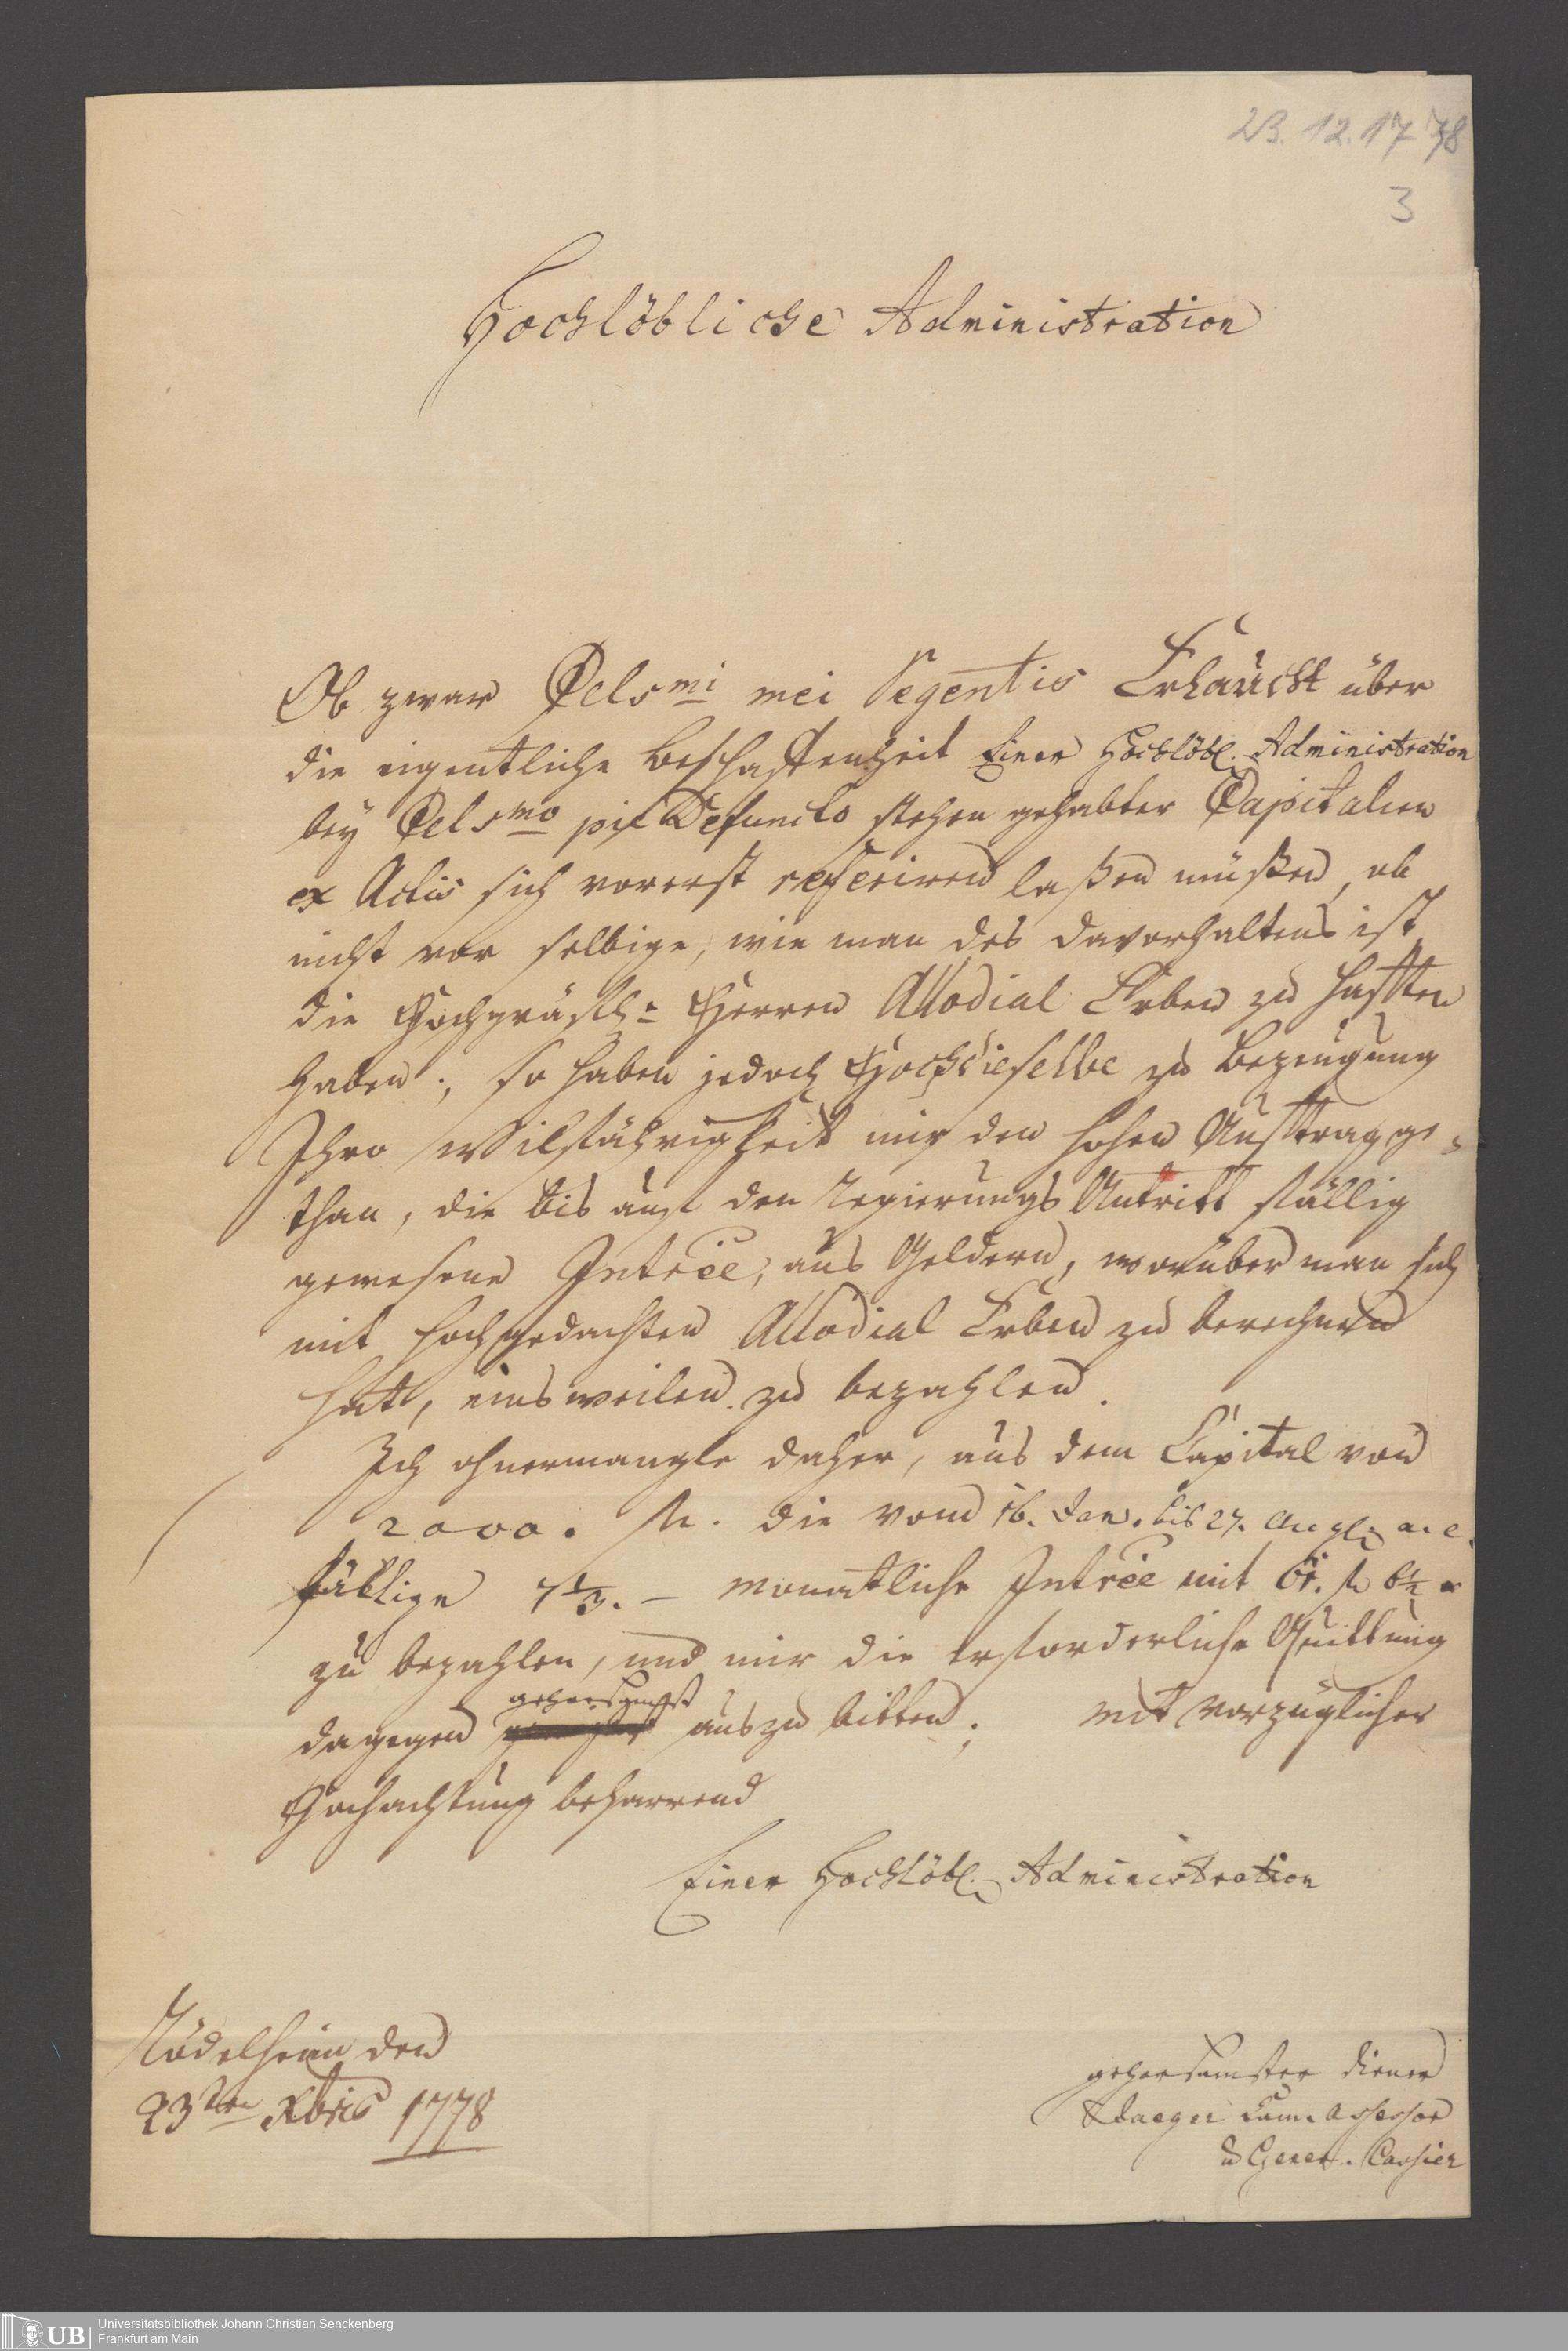 23.12.1778
3
Hochlöbliche Administration
Ob zwar Cels<u>mi</u> mei Regentis Erlaucht über
die eigentliche Beschaffenheit Einer Hochlöbl. Administration
bey Cels<u>mo</u> pie Defuncto stehen gehabter Capitalien
ex Actis sich vorerst referiren laßen müßen, ob
nicht vor selbige, wie man des davorhaltens ist,
die Hochgräfl: Herren Allodial Erben zu hafften
haben; so haben jedoch Hochdieselbe zu Bezeugung
Ihro Willfährigkeit mir den hohen Auftrag ge=
than, die bis auf den Regierungs Antritt fällig
gewesene Intrêe, aus Geldern, worüber man sich
mit hochgedachten Allodial Erben zu berechnen
hat, einsweilen zu bezahlen.
Ich ohnermangle daher, aus dem Capital von
2000. fl. die vom 16. Jan. bis 27. Aug. a. c.
fällige 7 1/3. - monatliche Intrêe mit 61. fl 6 1/2 x
zu bezahlen, und mir die erforderliche Quittung
gehorsamst
dagegen auszubitten; mit vorzüglicher
Hochachtung beharrend
Einer Hochlöbl. Administration
Rödelheim den
23ten Xbris 1778
gehorsamster Diener
Cam. Assessor
u Gener. Cassier
UB Universitätsbibliothek Johann Christian Senckenberg
Frankfurt am Main